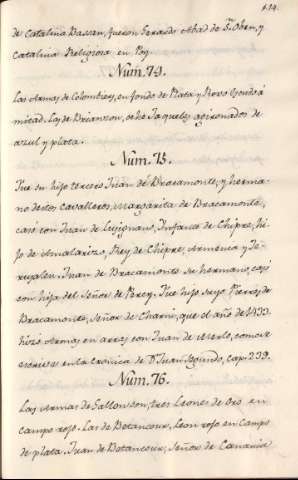 114.
de Catalina Bassan, fueron Gerardo Abad de S. Oben, y
Catalina Religiosa en Poy.
Num. 74.
Las Armas de Colombiers, en fondo de Plata y Rovo Escudo á
mitad. Las de Brianzon, ocho Jaqueles agironados de
azul y plata.
Num. 75.
Fue su hijo tercero Juan de Bracamonte, y herma-
no destos Cavalleros, Margarita de Bracamonte,
casó con Juan de Lusignano, Infante de Chipre, hi-
jo de Amalarizo, Rey de Chipre, Armenia y Je-
rusalen. Juan de Bracamonte su hermano, casó
con hija del Señor de Percy. Fue hijo suyo Pierres de
Bracamonte, Señor de Charni, que el año de 1433.
hizo Armas en arras con Juan de Merlo, como se
escrive en la Cronica de D. Juan Segundo, cap. 239.
Num. 76.
Las Armas de Gallonson, tres Leones de Oro en
campo rojo. Las de Betancour, Leon rojo en Campo
de plata. Juan de Betancour, Señor de Canaria